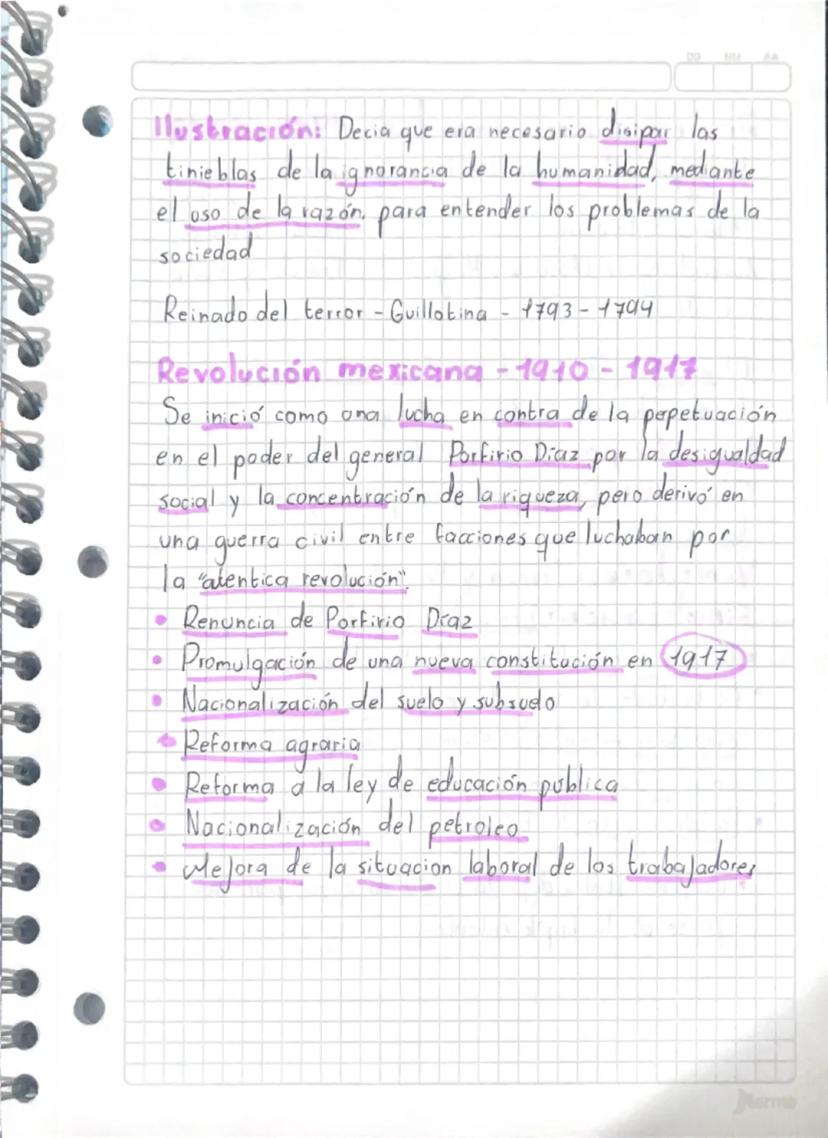 Ilustración: Decia que era necesario disipar las
tinieblas de la ignorancia de la humanidad, mediante
el uso de la razón, para entender los problemas de la
sociedad
Reinado del terror - Guillotina - 1793 - 1794
Revolución mexicana - 1910 - 1917
Se inició como una lucha en contra de la pepetuación
en el poder del general Porfirio Díaz por la desigualdad
social y la concentración de la riqueza, pero derivó en
una guerra civil entre facciones que luchaban por
la "atentica revolución".
• Renuncia de Porfirio Díaz
• Promulgación de una nueva constitución en 1917
• Nacionalización del suelo y subsuelo
• Reforma agraria
• Reforma a la ley de educación publica
• Nacionalización del petroleo
• Mejora de la situacion laboral de los trabajadores